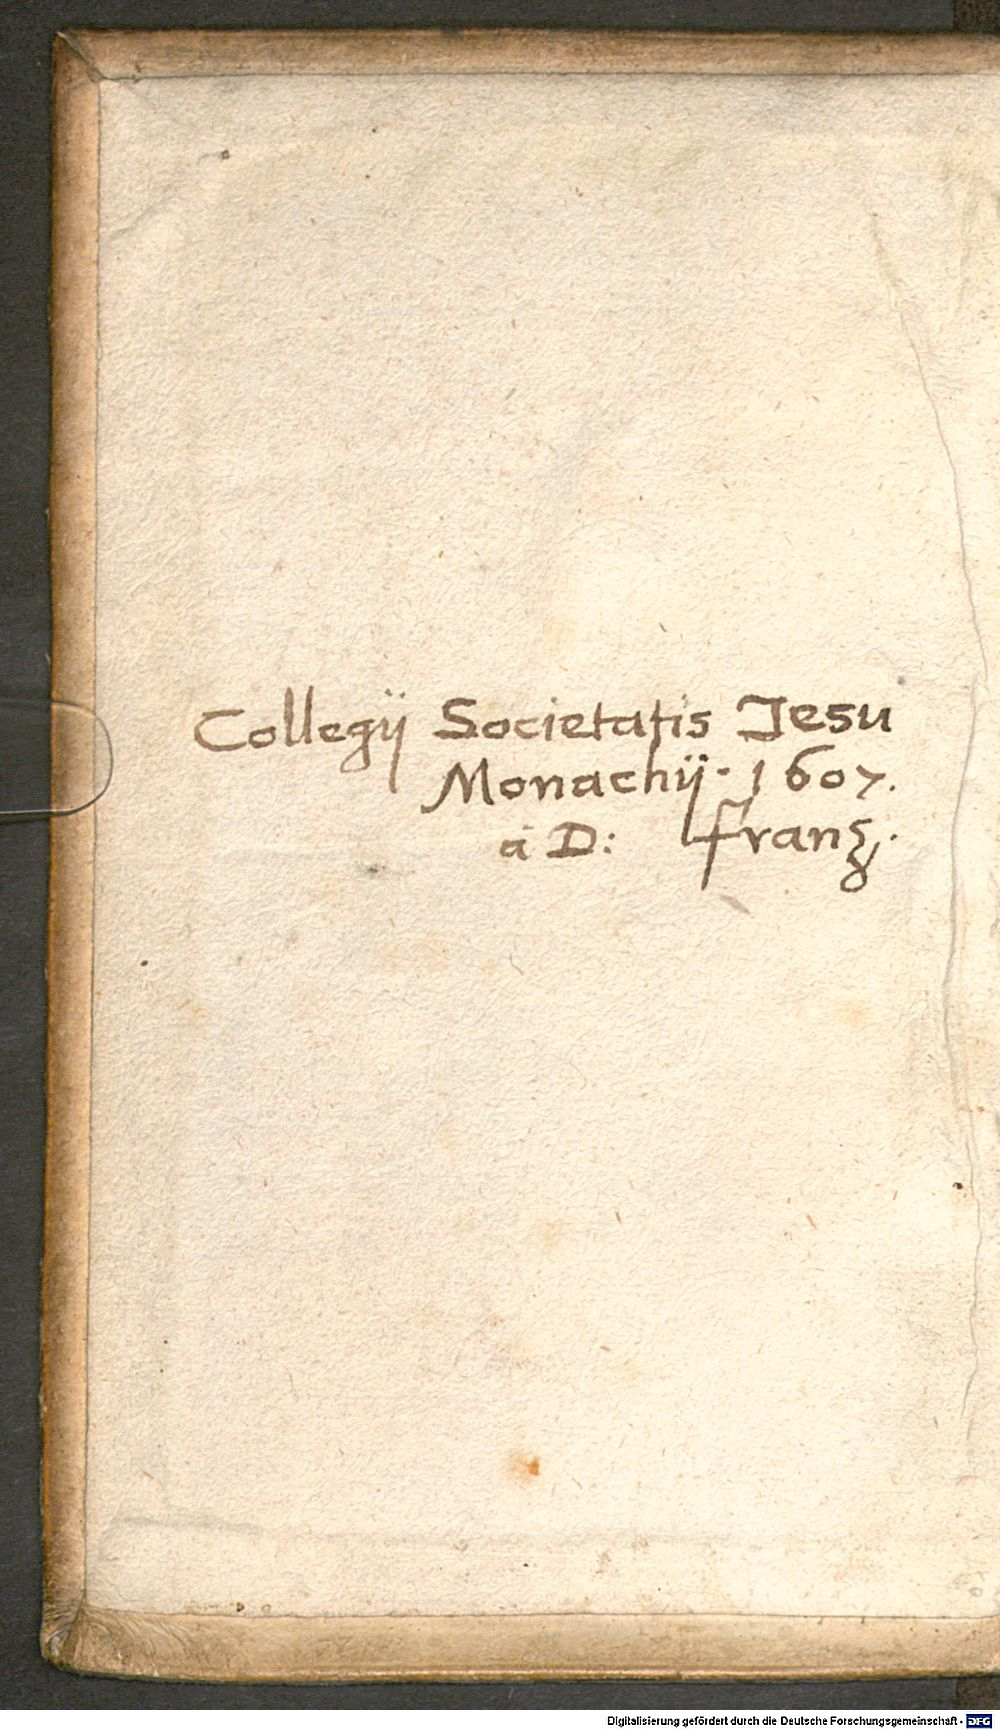 Collegij Societatis Iesu
Monachij. 1607.
a D: Franz.
Digitalisierung gefördert durch die Deutsche Forschungsgemeinschaft - DFG